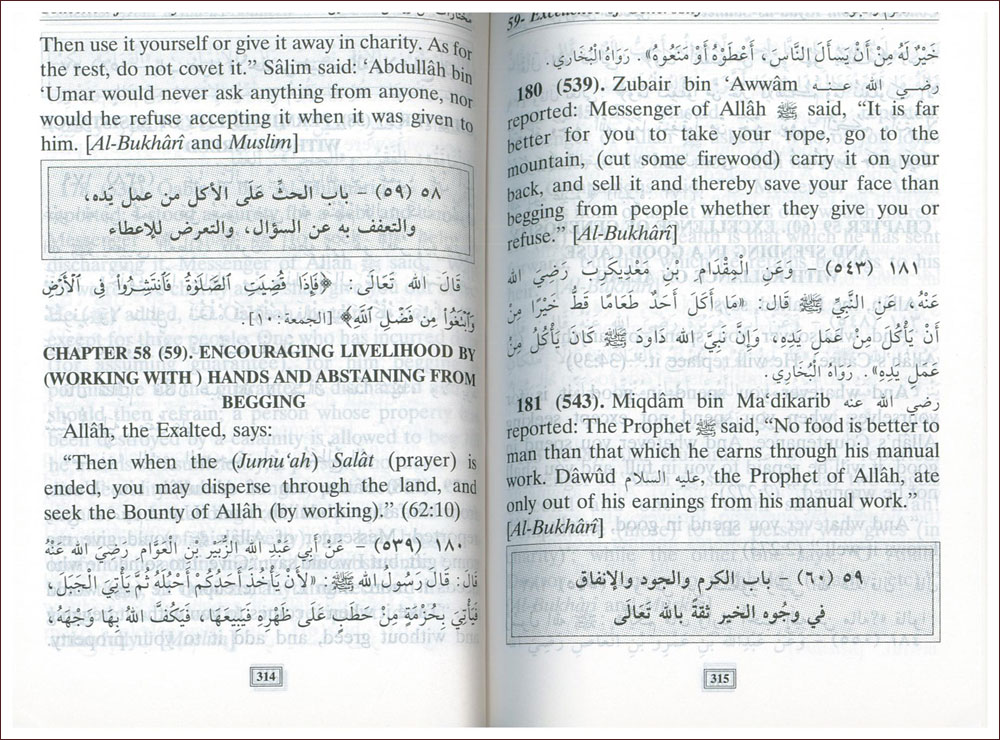 Then use it yourself or give it away in charity. As for
the rest, do not covet it.” Sâlim said: ‘Abdullâh bin
‘Umar would never ask anything from anyone, nor
would he refuse accepting it when it was given to
him. [Al-Bukhârî and Muslim]
٥٨ (٥٩) – باب الحثّ عَلَى الأكل من عمل يَده،
والتعفف به عن السؤال، والتعرض للإعطاء
قَالَ الله تَعَالَى: ﴿فَإِذَا قُضِيَتِ ٱلصَّلَوٰةُ فَٱنتَشِرُوا۟ فِى ٱلْأَرْضِ
وَٱبْتَغُوا۟ مِن فَضْلِ ٱللَّهِ﴾ [الجمعة: ١٠].
CHAPTER 58 (59). ENCOURAGING LIVELIHOOD BY
(WORKING WITH ) HANDS AND ABSTAINING FROM
BEGGING
Allâh, the Exalted, says:
“Then when the (Jumu‘ah) Salât (prayer) is
ended, you may disperse through the land, and
seek the Bounty of Allâh (by working).” (62:10)
١٨٠ (٥٣٩) – عَنْ أَبِي عَبْدِ الله الزُّبَيْرِ بْنِ الْعَوَّامِ رَضِيَ اللهُ عَنْهُ
قالَ: قَالَ رَسُولُ اللهِ ﷺ: «لأَنْ يَأْخُذَ أَحَدُكُمْ أَحْبُلَهُ ثُمَّ يَأْتِيَ الْجَبَلَ،
فَيَأْتِيَ بِحُزْمَةٍ مِنْ حَطَبٍ عَلَى ظَهْرِهِ فَيَبِيعَهَا، فَيَكُفَّ اللهُ بِهَا وَجْهَهُ،
314
خَيْرٌ لَهُ مِنْ أَنْ يَسأَلَ النَّاسَ، أَعْطَوْهُ أَوْ مَنَعُوهُ». رَوَاهُ الْبُخَارِي.
180 (539). Zubair bin ‘Awwâm رضي الله عنه
reported: Messenger of Allâh ﷺ said, “It is far
better for you to take your rope, go to the
mountain, (cut some firewood) carry it on your
back, and sell it and thereby save your face than
begging from people whether they give you or
refuse.” [Al-Bukhârî]
١٨١ (٥٤٣) – وَعَنِ الْمِقْدَامِ بْنِ مَعْدِيكَرِبَ رَضِيَ الله
عَنْهُ، عَنِ النَّبِيِّ ﷺ قال: «مَا أَكَلَ أَحَدٌ طَعَامًا قَطُّ خَيْرًا مِنْ
أَنْ يَأْكُلَ مِنْ عَمَلِ يَدِهِ، وَإِنَّ نَبِيَّ الله دَاوُدَ ﷺ كَانَ يَأْكُلُ مِنْ
عَمَلِ يَدِهِ». رَوَاهُ الْبُخَارِي.
181 (543). Miqdâm bin Ma‘dikarib رضي الله عنه
reported: The Prophet ﷺ said, “No food is better to
man than that which he earns through his manual
work. Dâwûd عليه السلام, the Prophet of Allâh, ate
only out of his earnings from his manual work.”
[Al-Bukhârî]
٥٩ (٦٠) – باب الكرم والجود والإنفاق
في وجُوه الخير ثقةً بالله تَعَالَى
315